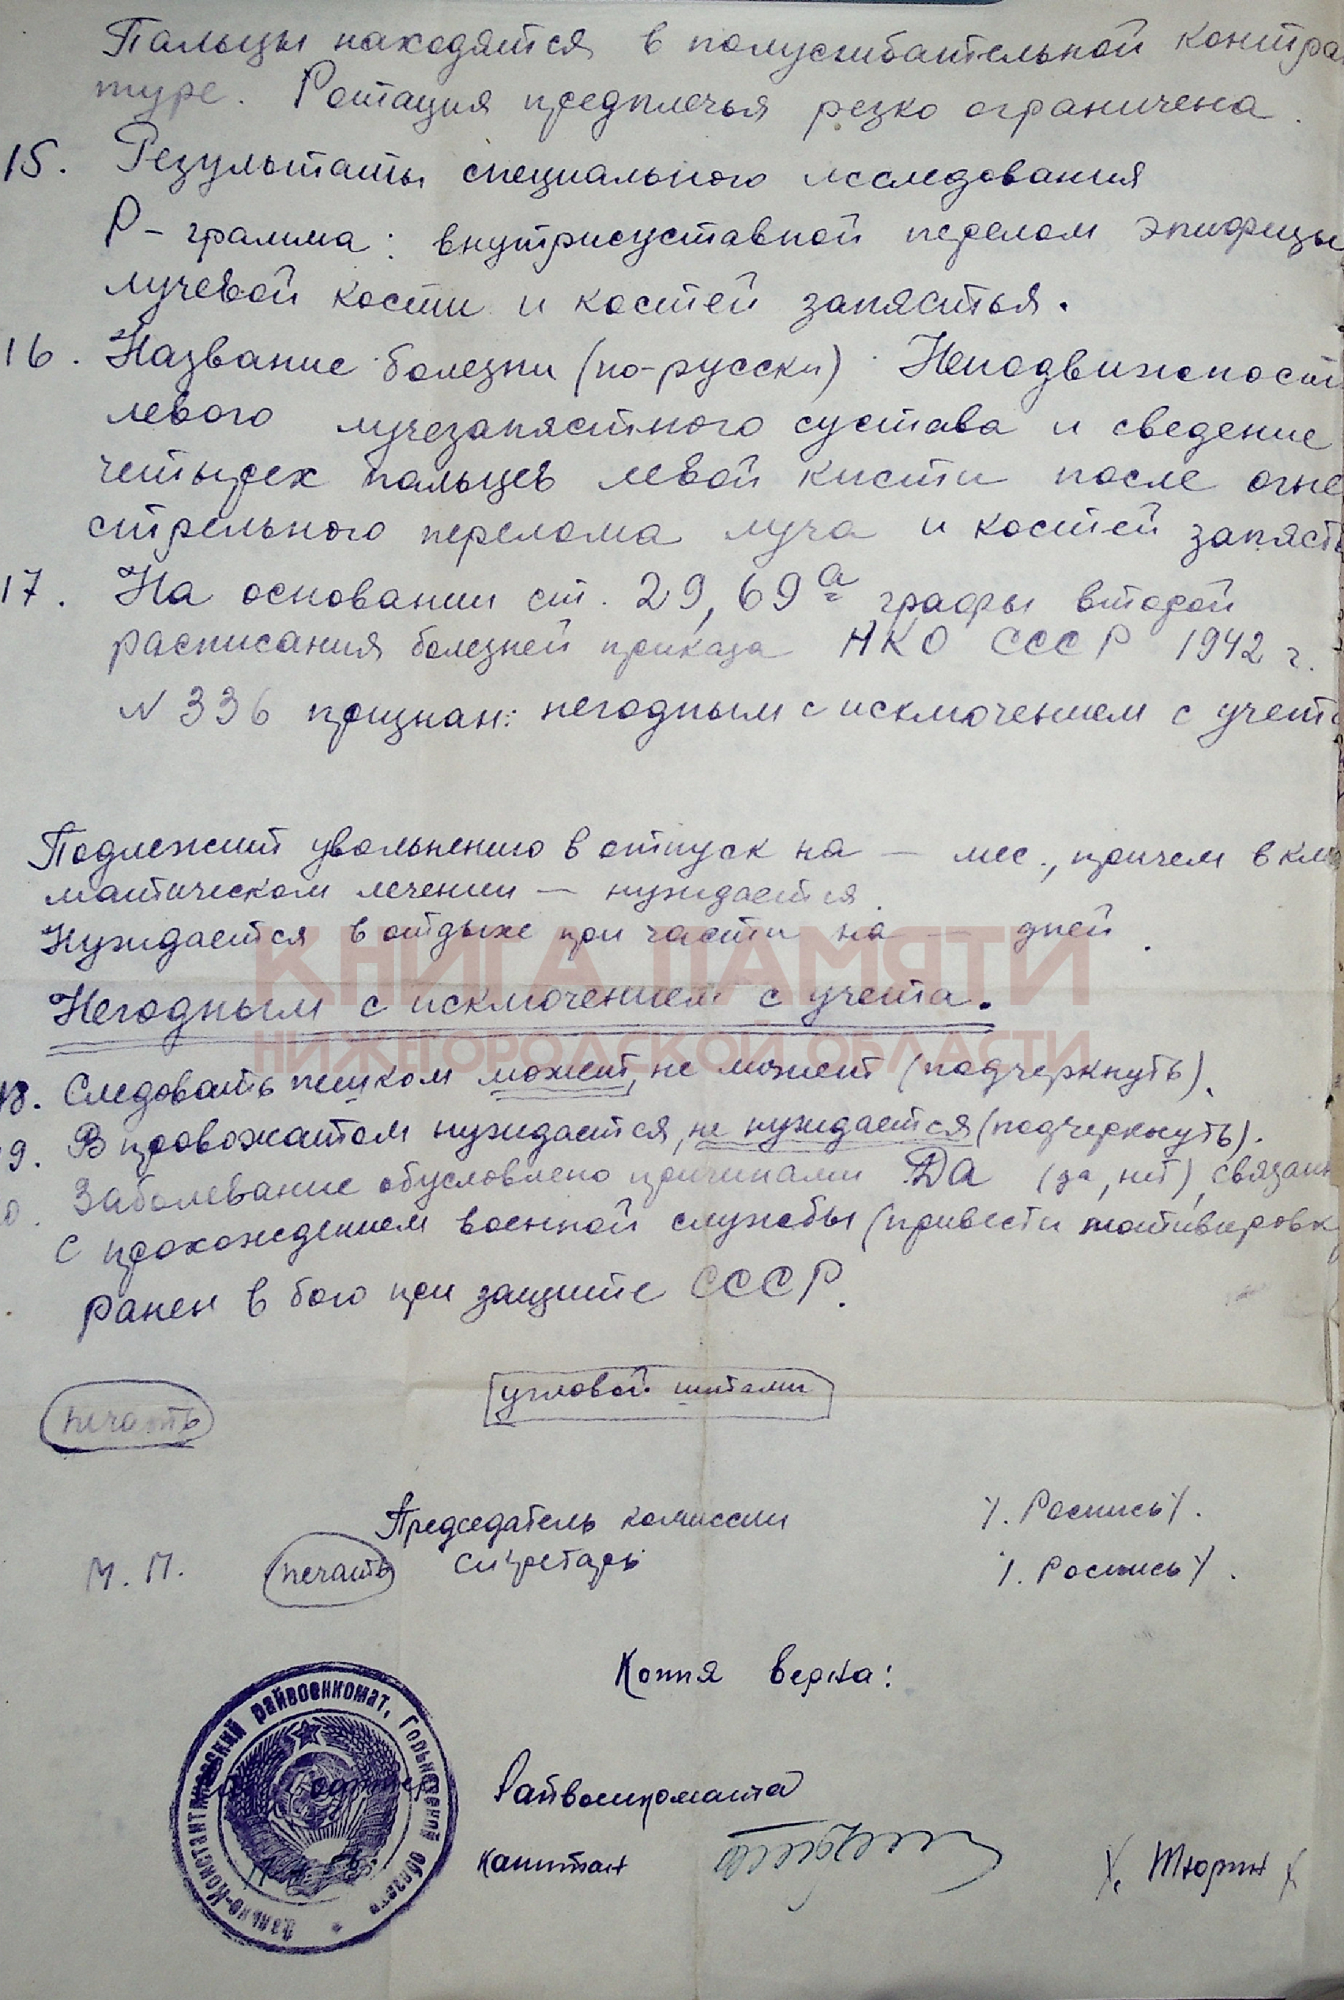 Пальцы находятся в полусгибательной контрак
туре. Ротация предплечья резко ограничена.
15. Результаты специального исследования
Р-грамма: внутрисуставной перелом эпифизы
лучевой кости и костей запястья.
16. Название болезни (по-русски) Неподвижность
левого лучезапястного сустава и сведение
четырех пальцев левой кисти после огне
стрельного перелома луча и костей запястья
17. На основании ст. 29, 69а графы второй
расписания болезней приказа НКО СССР 1942 г.
N 336 признан: негодным с исключением с учета
Подлежит увольнению в отпуск на — мес., причем в кли
матическом лечении — нуждается.
Нуждается в отдыхе при части на — дней.
КНИГА ПАМЯТИ
Негодным с исключением с учета.
НИЖЕГОРОДСКОЙ ОБЛАСТИ
18. Следовать пешком может, не может (подчеркнуть).
9. В провожатом нуждается, не нуждается (подчеркнуть).
0. Заболевание обусловлено причинами Да (да, нет), связан
с прохождением военной службы (привести мотивировку
Ранен в бою при защите СССР.
угловой штамп
печать
Председатель комиссии /. Роспись/.
М. П. печать Секретарь /. Роспись/.
Копия верна:
Дально-Константиновский райвоенкомат, Горьковской области
Райвоенкомата
капитан /. Тюрин/